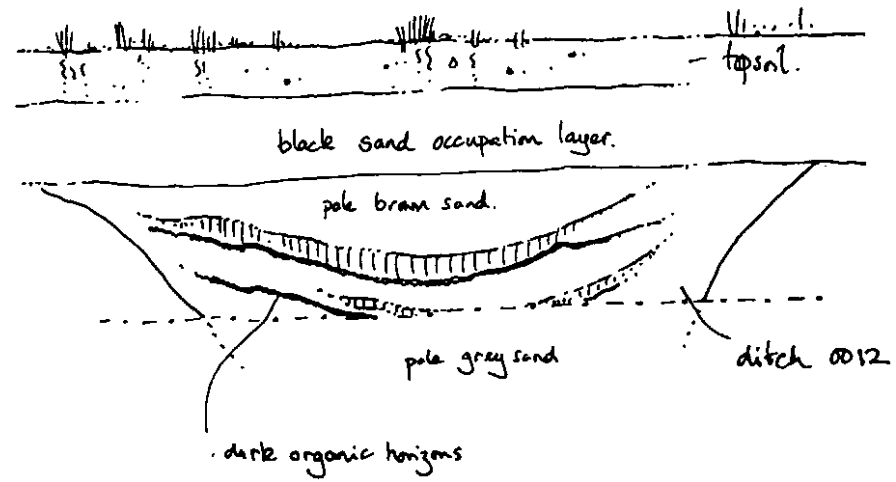 topsoil.
black sand occupation layer.
pale brown sand.
pale grey sand
ditch 0012
dark organic horizons